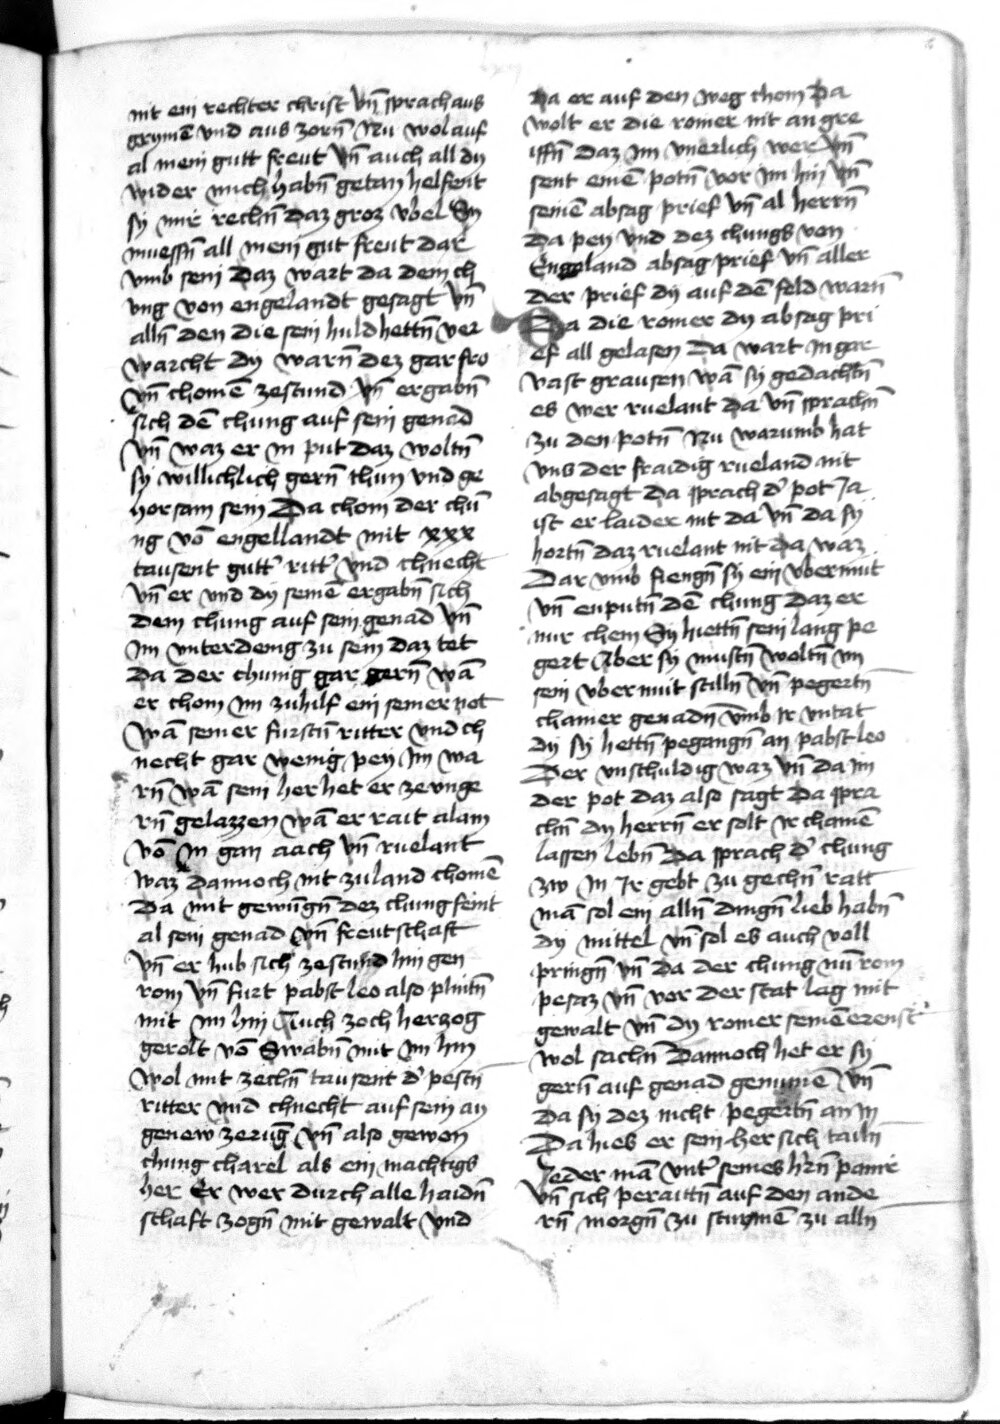 nit ein rechter christ vn̄ sprach aus
grymē vnd aus zorn̄ Nu wol auf
al mein gutt freut vn̄ auch all dy
wider mich habn̄ getan helfent
sy mir rechn̄ daz groz vbel Sy
muessn̄ all mein gut freut dar
vmb sein Daz wart da dem ch
ung von engelandt gesagt vn̄
alln̄ den die sein huld hettn̄ ver
warcht dy warn̄ dez gar fro
vn̄ chomē zestund vn̄ ergabn̄
sich dē chung auf sein genad
vn̄ waz er in put daz woltn̄
sy willichlich gern̄ thun vnd ge
horsam sein Da chom der chū
ng vō engellandt mit xxx
tausent gutt' ritt' vnd chnecht
vn̄ er vnd dy seinē ergabn̄ sich
dem chung auf sein genad vn̄
im vnterdenig zu sein daz tet
Da der chunig gar gern̄ wā
er chom im zu hilf ein seiner not
wā seiner furstn̄ ritter vnd ch
necht gar wenig pey im wa
rn̄ wā sein her het er ze vnge
rn̄ gelazzen wā er rait alain
vō in gan aach vn̄ ruelant
waz dannoch nit zu land chomē
Da mit gewūgn̄ dez chung feint
al sein genad vn̄ freutschaft
vn̄ er hub sich zestund hin gen
rom vn̄ furt pabst leo also plintn̄
mit im hin Auch zoch herzog
gerolt vō Swabn̄ mit im hin
wol mit zechn̄ tausent d' pestn̄
ritter vnd chnecht auf sein an
genew zeruḡ vn̄ also gewon
chung charel als ein machtigs
her Er wer durch alle haidn̄
schaft zogn̄ mit gewalt vnd
Da er auf den weg chem Da
wolt er die romer nit an gre
iffn̄ daz im vnerlich wer vn̄
sent einē potn̄ vor im hin vn̄
seinē absag prief vn̄ al herrn̄
Da pey vnd dez chungs von
Engeland absag prief vn̄ aller
der prief dy auf dē feld warn̄
Da die romer dy absag pri
ef all gelasen Da wart in gar
vast grausen wā sy gedachtn̄
es wer ruelant da vn̄ sprachn̄
zu den potn̄ Nu warumb hat
vns der fraidig rueland nit
abgesagt Da sprach d' pot Ja
ist er laider nit da vn̄ da sy
hortn̄ daz ruelant nit da waz
Dar vmb fiengn̄ sy ein vbermut
vn̄ enputn̄ dē chung daz er
nur chem Sy hiettn̄ sein lang pe
gert Aber sy mustn̄ woltn̄ im
sein vbermut stilln̄ vn̄ pegertn̄
chainer genadn̄ vmb ir vntat
dy sy hettn̄ pegangn̄ an pabst leo
Der vnschuldig waz vn̄ da im
der pot daz also sagt Da spra
chn̄ dy herrn̄ er solt ir chainē
lassen lebn̄ Da sprach d' chung
zw in Ir gebt zu gechn̄ ratt
mā sol ein alln̄ dingn̄ lieb habn̄
dy mittel vn̄ sol es auch voll
pringn̄ vn̄ da der chung nū rom
pesaz vn̄ vor der stat lag mit
gewalt vn̄ dy romer seinē erenst
wol sachn̄ Dannoch het er sy
gern̄ auf genad genumē vn̄
Da sy dez nicht pegertn̄ an in
Da hies er sein her sich tailn̄
Jeder mā vnt' seines h'rn̄ panir
vn̄ sich peraittn̄ auf den ande
rn̄ morgn̄ zu sturmē zu alln̄